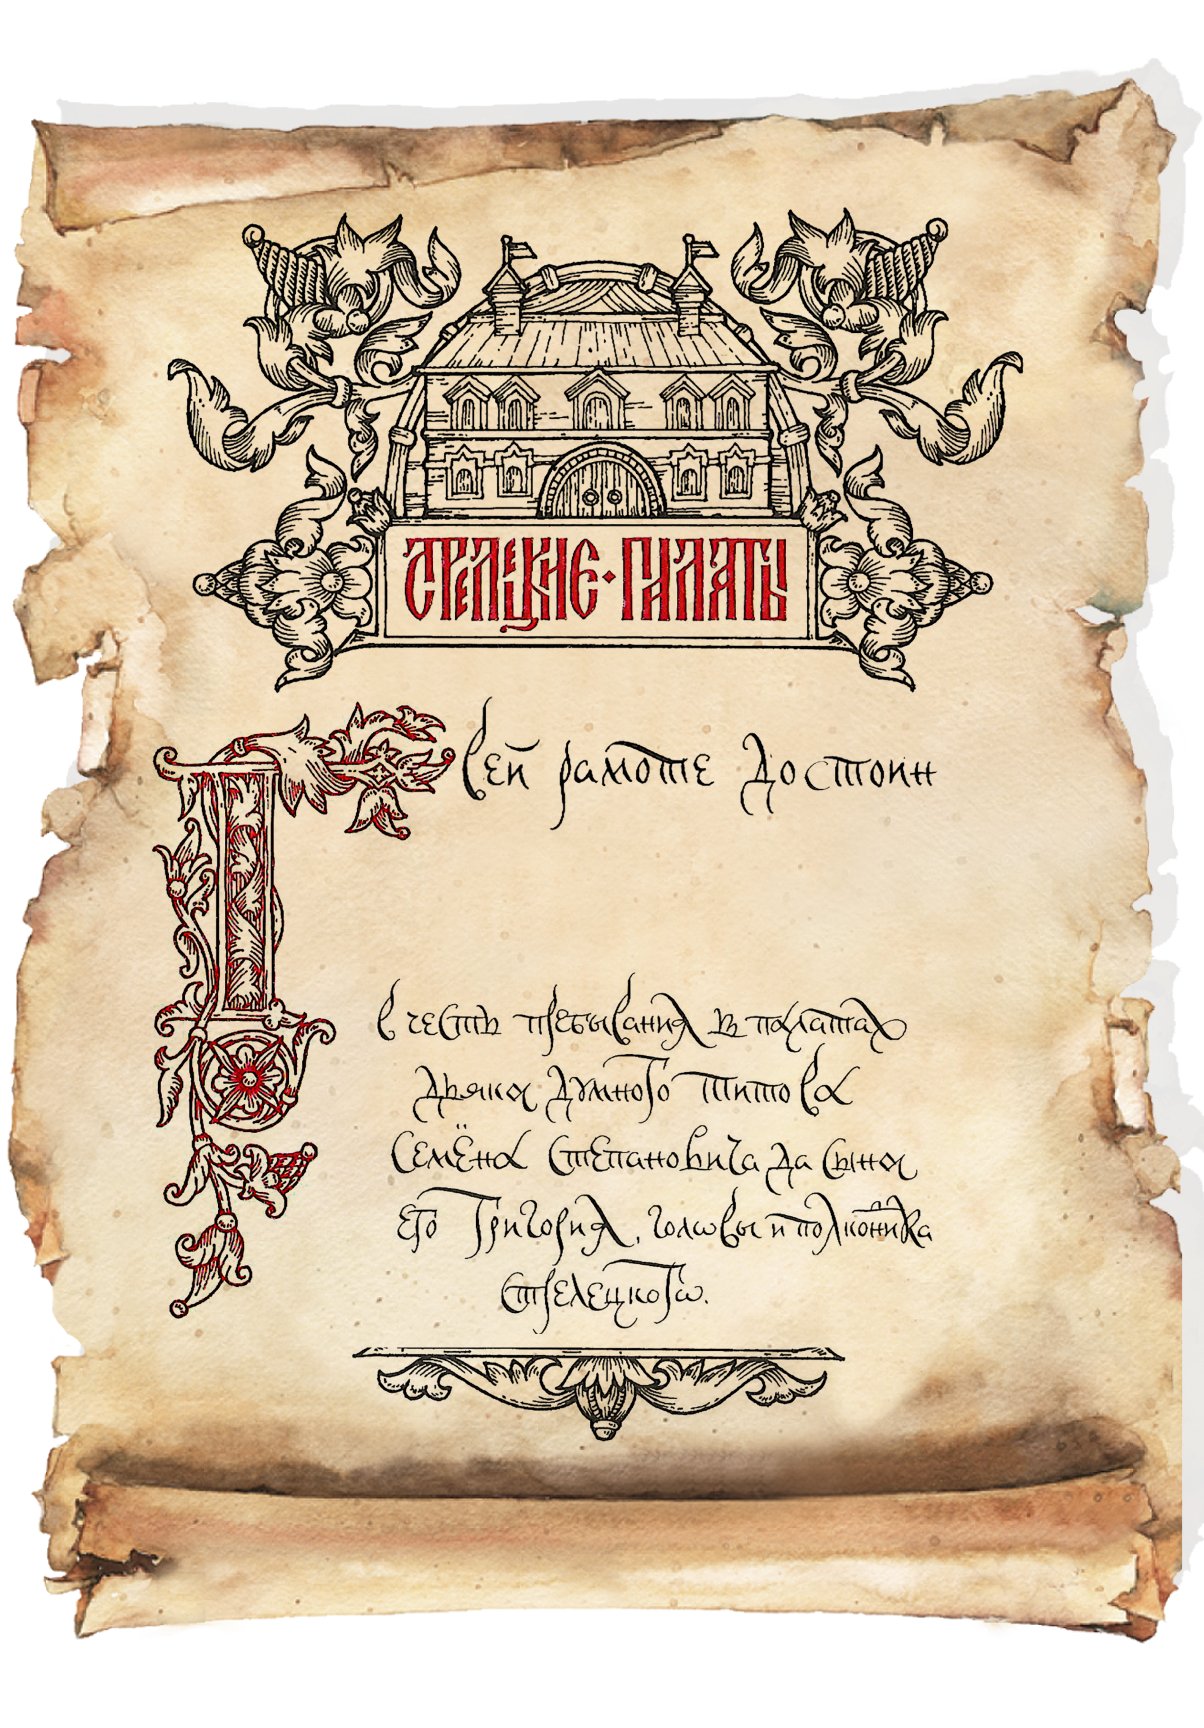 СТРЕЛЕЦКИЕ · ПАЛАТЫ
Гсей рамоте достоин
в честь пребывания в палатах
дьяка думного Титова
Семёна Степановича да сына
его Григория, головы и полковника
стрелецкогѡ.